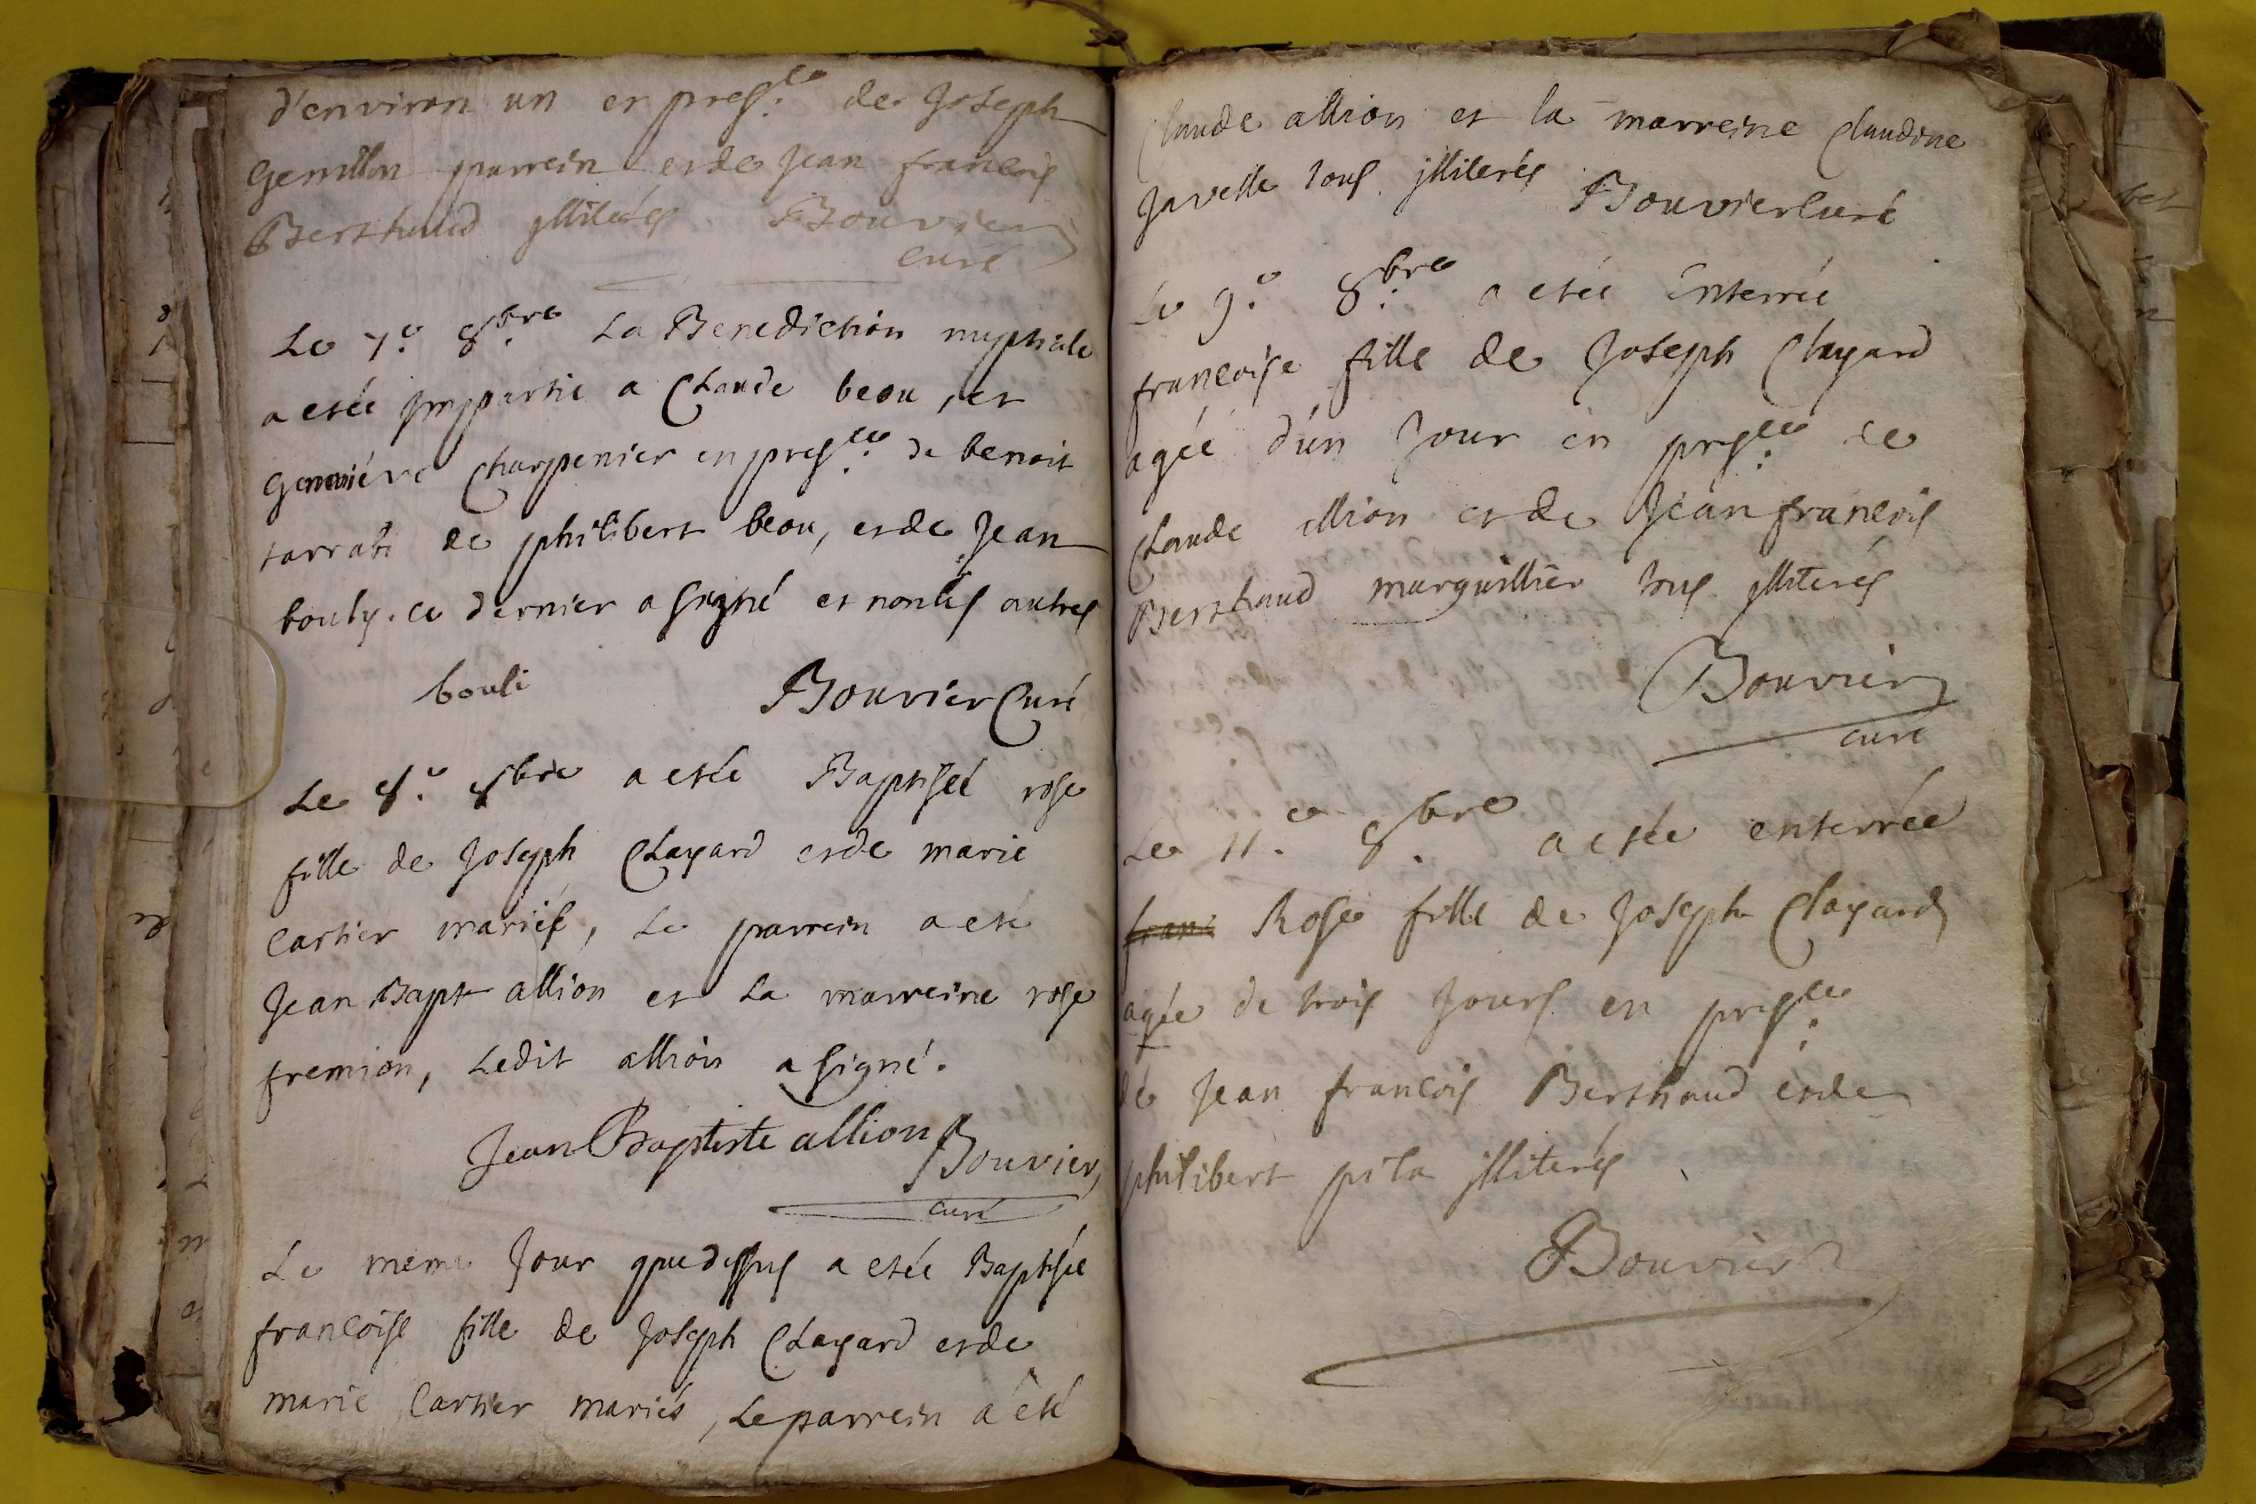 d'environ un er presce de Joseph
Gemillon parrein et de Jean francois
Berthaud jlliterés Bouvier
curé
Le 7e 8bre La Benediction nuptiale
a etéé jmpartie a Claude beou, et
Geneviéve Charpenier en presce de benoit
tarrabi de philibert beou, et de Jean
bouly. ce dernier a signé et non les autres
bouli Bouvier Curé
Le 8e 8bre a etéé Baptiséé rose
fille de Joseph Clayard et de marie
Cartier mariés, Le parrein a eté
Jean Bapt allion et La marreine rose
fremion, Ledit allion a signé.
Jean Baptiste allion Bouvier
curé
Le meme Jour que dessus a etéé Baptisée
francoise fille de Joseph Clayard et de
marie Cartier mariés, Le parrein a été
Claude allion et la marreine Claudine
Javelle tous jlliterés Bouvier Curé
Le 9e 8bre a etéé Enterréé
francoise fille de Joseph Clayard
agéé d'un Jour en presce de
Claude allion et de Jean francois
Berthaud marguillier tous jlliterés
Bouvier
curé
Le 11e 8bre a etée enterrée
frani Rose fille de Joseph Clayard
agée de trois Jours en presce
de Jean francois Berthaud et de
philibert pita jlliterés
Bouvier